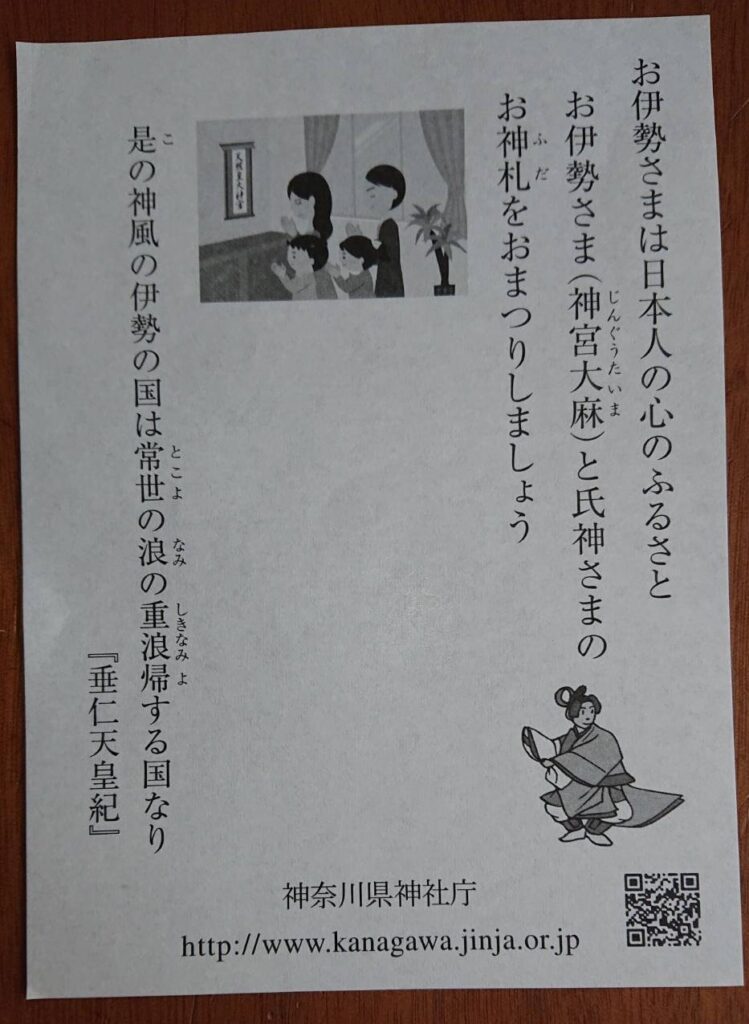 お伊勢さまは日本人の心のふるさと
お伊勢さま（神宮大麻）と氏神さまの
じんぐうたいま
お神札をおまつりしましょう
ふだ
天照皇大神宮
是の神風の伊勢の国は常世の浪の重浪帰する国なり
こ とこよ なみ しきなみ よ
『垂仁天皇紀』
神奈川県神社庁
http://www.kanagawa.jinja.or.jp